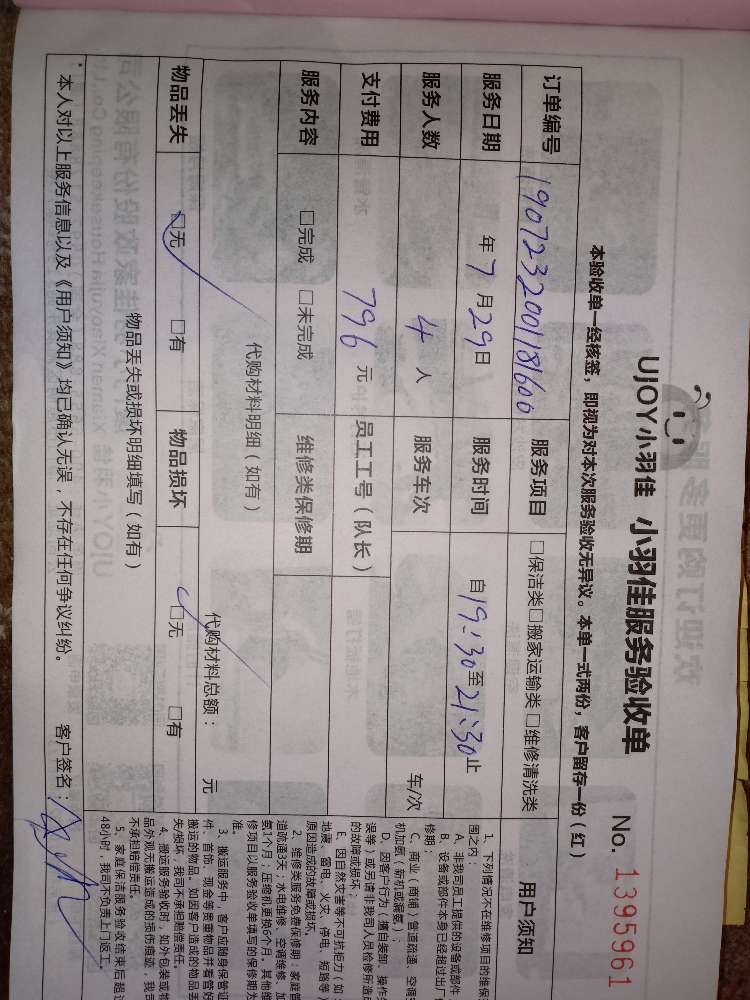 UJOY小羽佳 小羽佳服务验收单
No. 1395961
本验收单一经核签，即视为对本次服务验收无异议。本单一式两份，客户留存一份（红）
订单编号 190723200118160 服务项目 □保洁类□搬家运输类□维修清洗类
服务日期 年7月29日 服务时间 自19:30至21:30止
服务人数 4人 服务车次 车/次
支付费用 796元 员工工号（队长）
服务内容 □完成 □未完成 维修类保修期
代购材料明细（如有） 代购材料总额： 元
物品丢失 □无 □有 物品损坏 □无 □有
物品丢失或损坏明细填写（如有）
*本人对以上服务信息以及《用户须知》均已确认无误，不存在任何争议纠纷。 客户签名：
用户须知
1、下列情况不在维修项目的维保
围之内：
A、非我司员工提供的设备或部件
B、设备或部件本身已经超过出厂
修期；
C、商业（商铺）管道疏通、空调
机加氨（新机或漏氨）；
D、因客户行为（擅自装卸、操作
误等）或另请非我司人员检修所造成
的故障或损坏；
E、因自然灾害等不可抗拒力（如：
地震、雷电、火灾、停电、短路等）
原因造成的故障或损坏。
2、维修类服务免费保修期：家庭管
道疏通3天；水电维修、空调维修、加
氨1个月；压缩机更换6个月。其他维
修项目以服务验收单填写的保修期为
准。
3、搬运服务中，客户应随身保管证
件、首饰、现金等贵重物品并看管好
搬运的物品。如因客户造成的物品丢
失/损坏，我司不承担赔偿责任。
4、搬运服务验收时，如外包装或物
品外观无搬运造成的损伤痕迹，我司
不承担赔偿责任。
5、家庭保洁服务验收结束后超过
48小时，我司不负责上门返工。